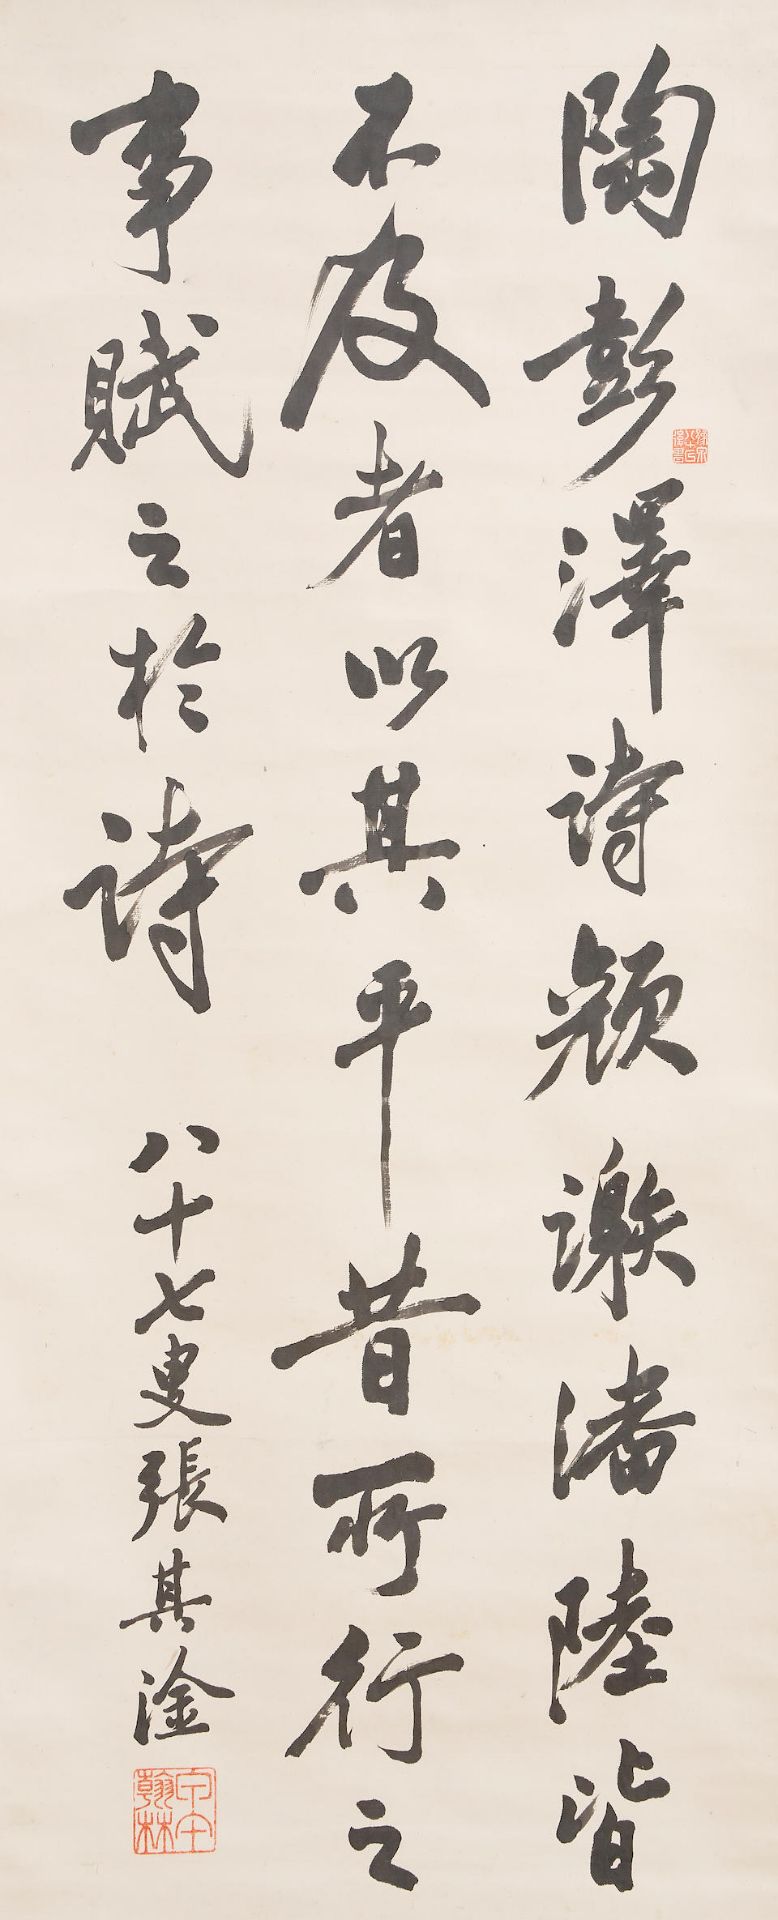 陶彭澤詩顏謝潘陸皆
不及者以其平昔所行之
事賦之於詩
八十七叟張其淦